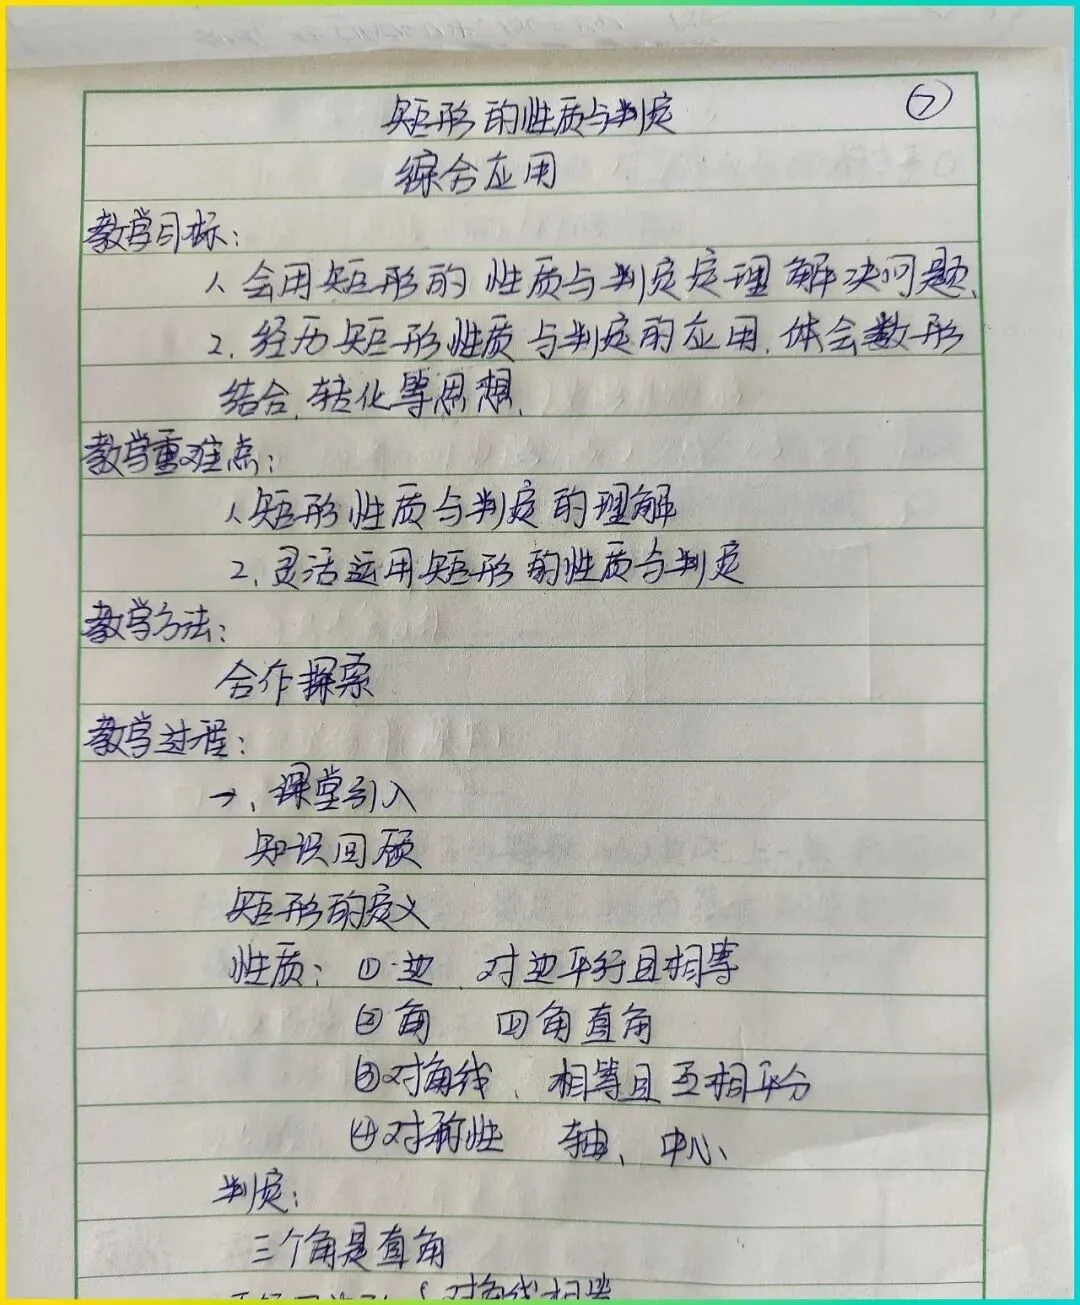 矩形的性质与判定
⑦
综合应用
教学目标:
1、会用矩形的性质与判定定理解决问题、
2、经历矩形性质与判定的应用、体会数形
结合、转化等思想、
教学重难点:
1、矩形性质与判定的理解
2、灵活运用矩形的性质与判定
教学方法:
合作探索
教学过程:
一、课堂引入
知识回顾
矩形的定义
性质: ①边、对边平行且相等
②角 四角直角
③对角线、相等且互相平分
④对称性 轴、中心、
判定:
三个角是直角
对角线相等